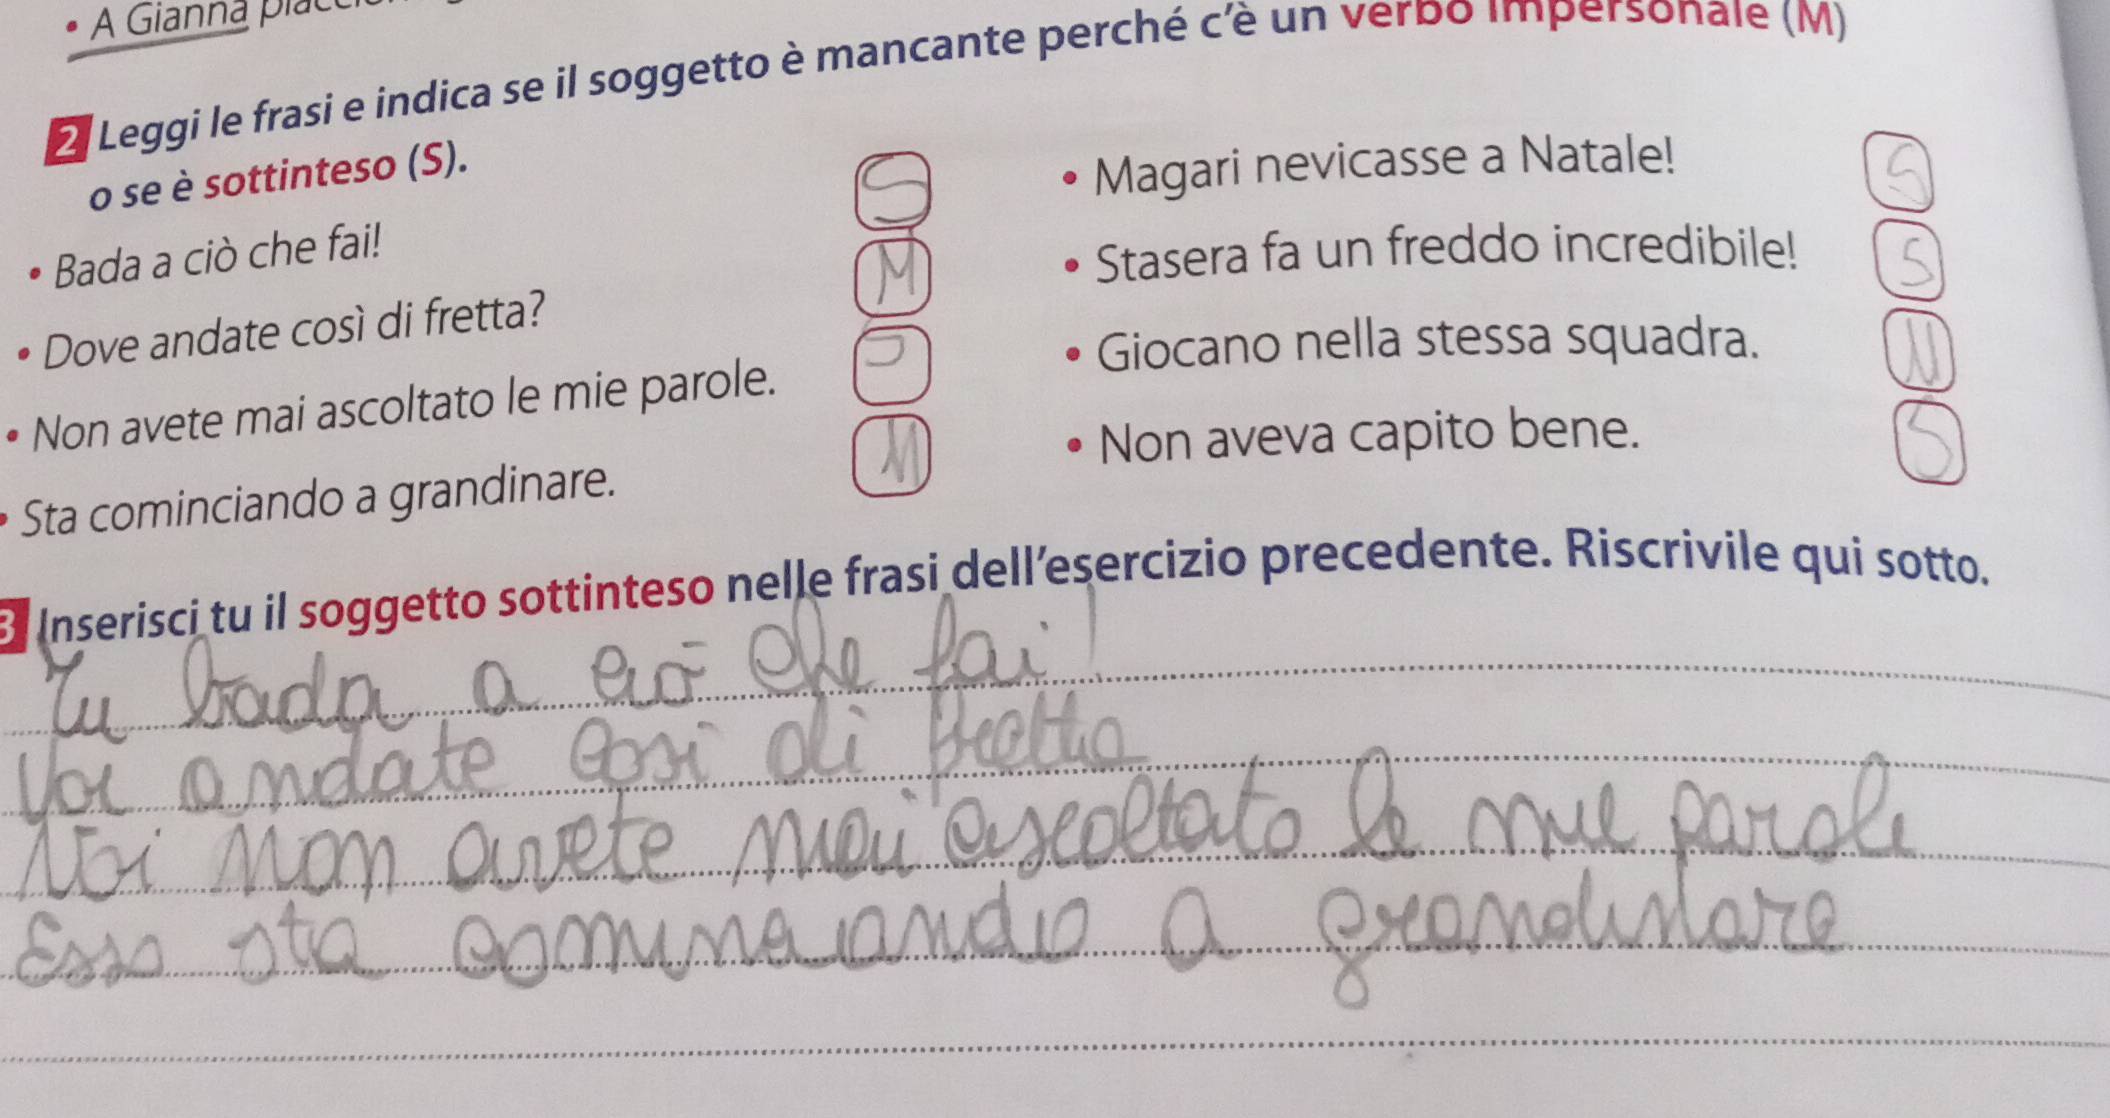 • A Gianna
2 Leggi le frasi e indica se il soggetto è mancante perché c'è un verbo impersonale (M)
o se è sottinteso (S).
• Bada a ciò che fai! S
• Dove andate così di fretta? M
• Non avete mai ascoltato le mie parole. S
• Sta cominciando a grandinare. M
• Magari nevicasse a Natale! S
• Stasera fa un freddo incredibile! S
• Giocano nella stessa squadra. M
• Non aveva capito bene. S
3 Inserisci tu il soggetto sottinteso nelle frasi dell'esercizio precedente. Riscrivile qui sotto.
Tu bada a ciò che fai!
Voi andate così di fretta
Noi non avete mai ascoltato le mie parole
Esso sta cominciando a grandinare